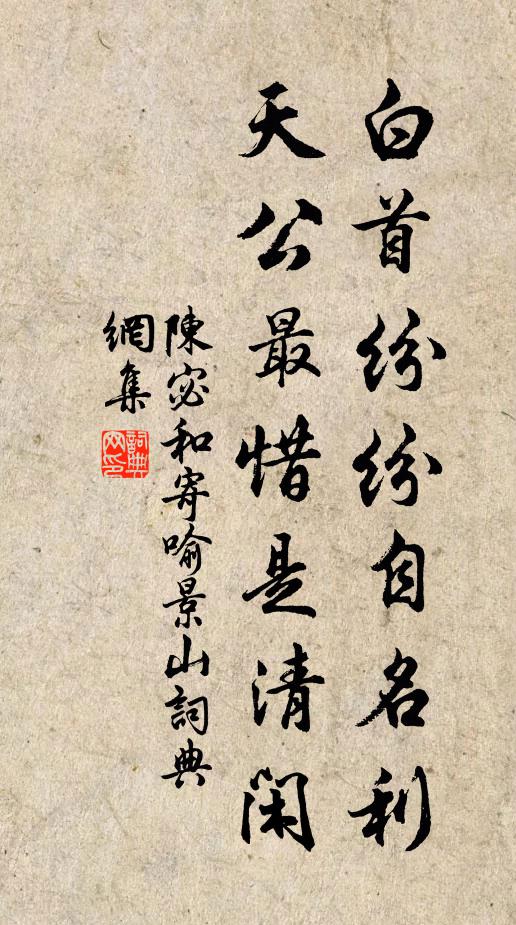 白首紛紛自名利
天公最惜是清閑
陳宓和寄喻景山詞典
網集
詞典
网印